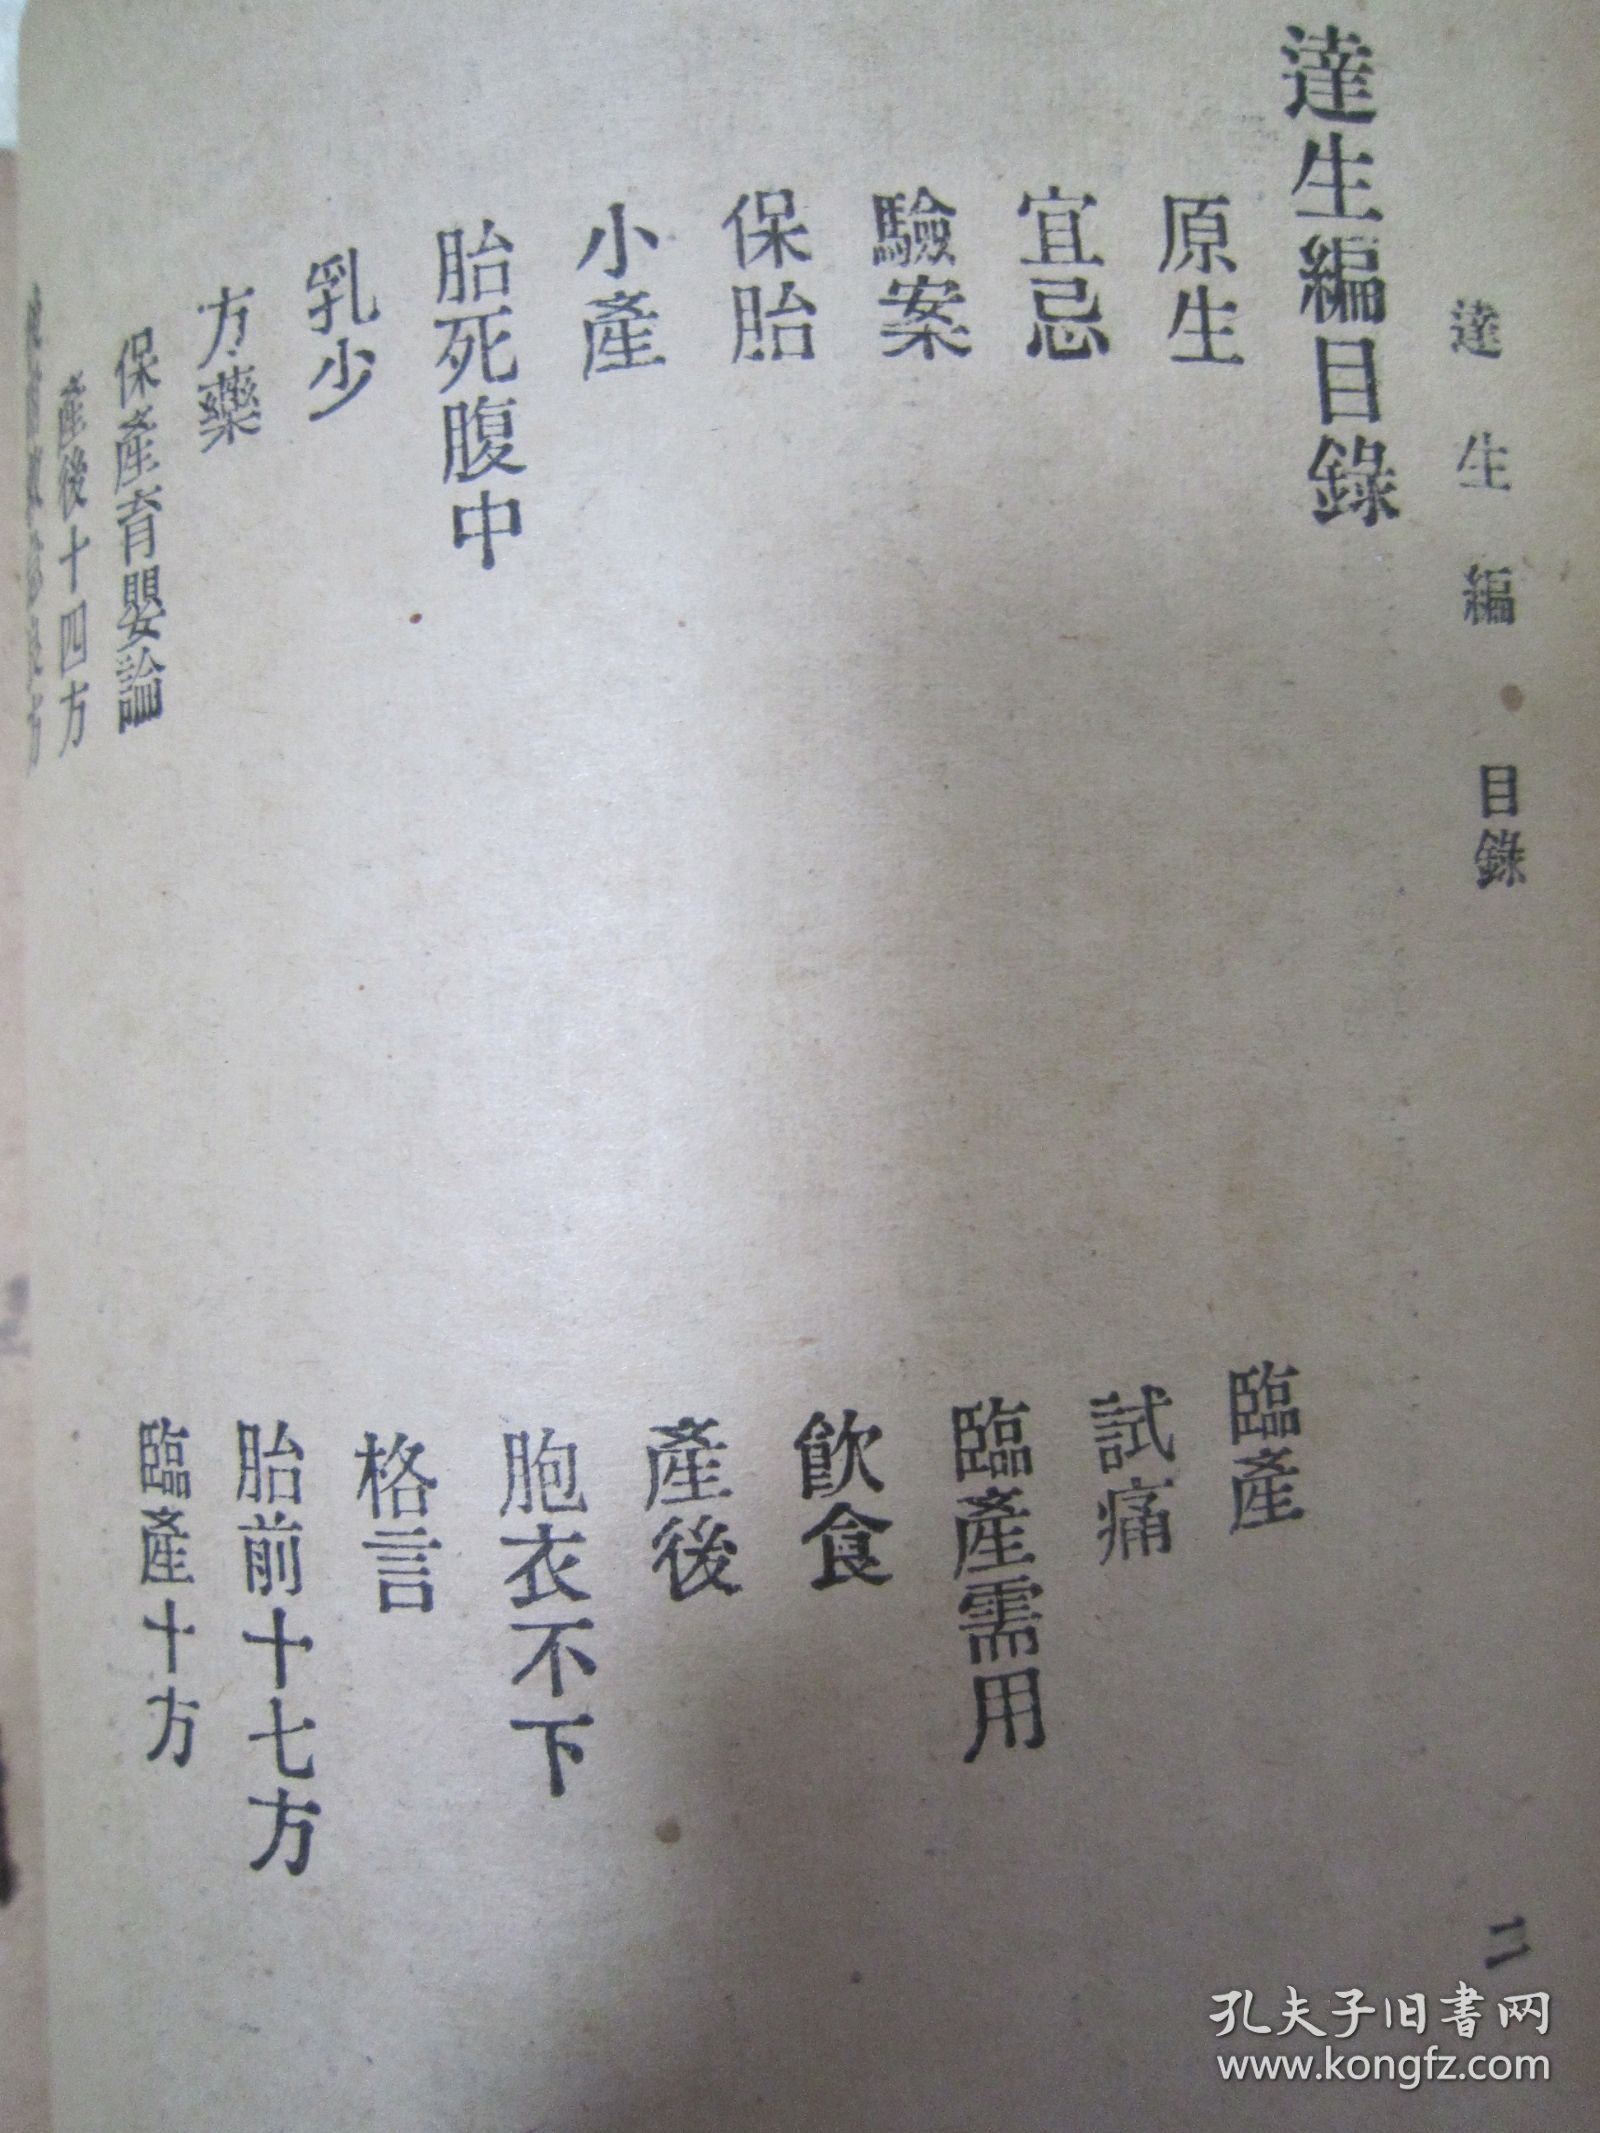 達生編 目錄 二
達生編目錄
原生 臨產
宜忌 試痛
驗案 臨產需用
保胎 飲食
小產 產後
胎死腹中 胞衣不下
乳少 格言
方藥 胎前十七方
保產育嬰論 臨產十方
產後十四方
孔夫子旧書网
www.kongfz.com